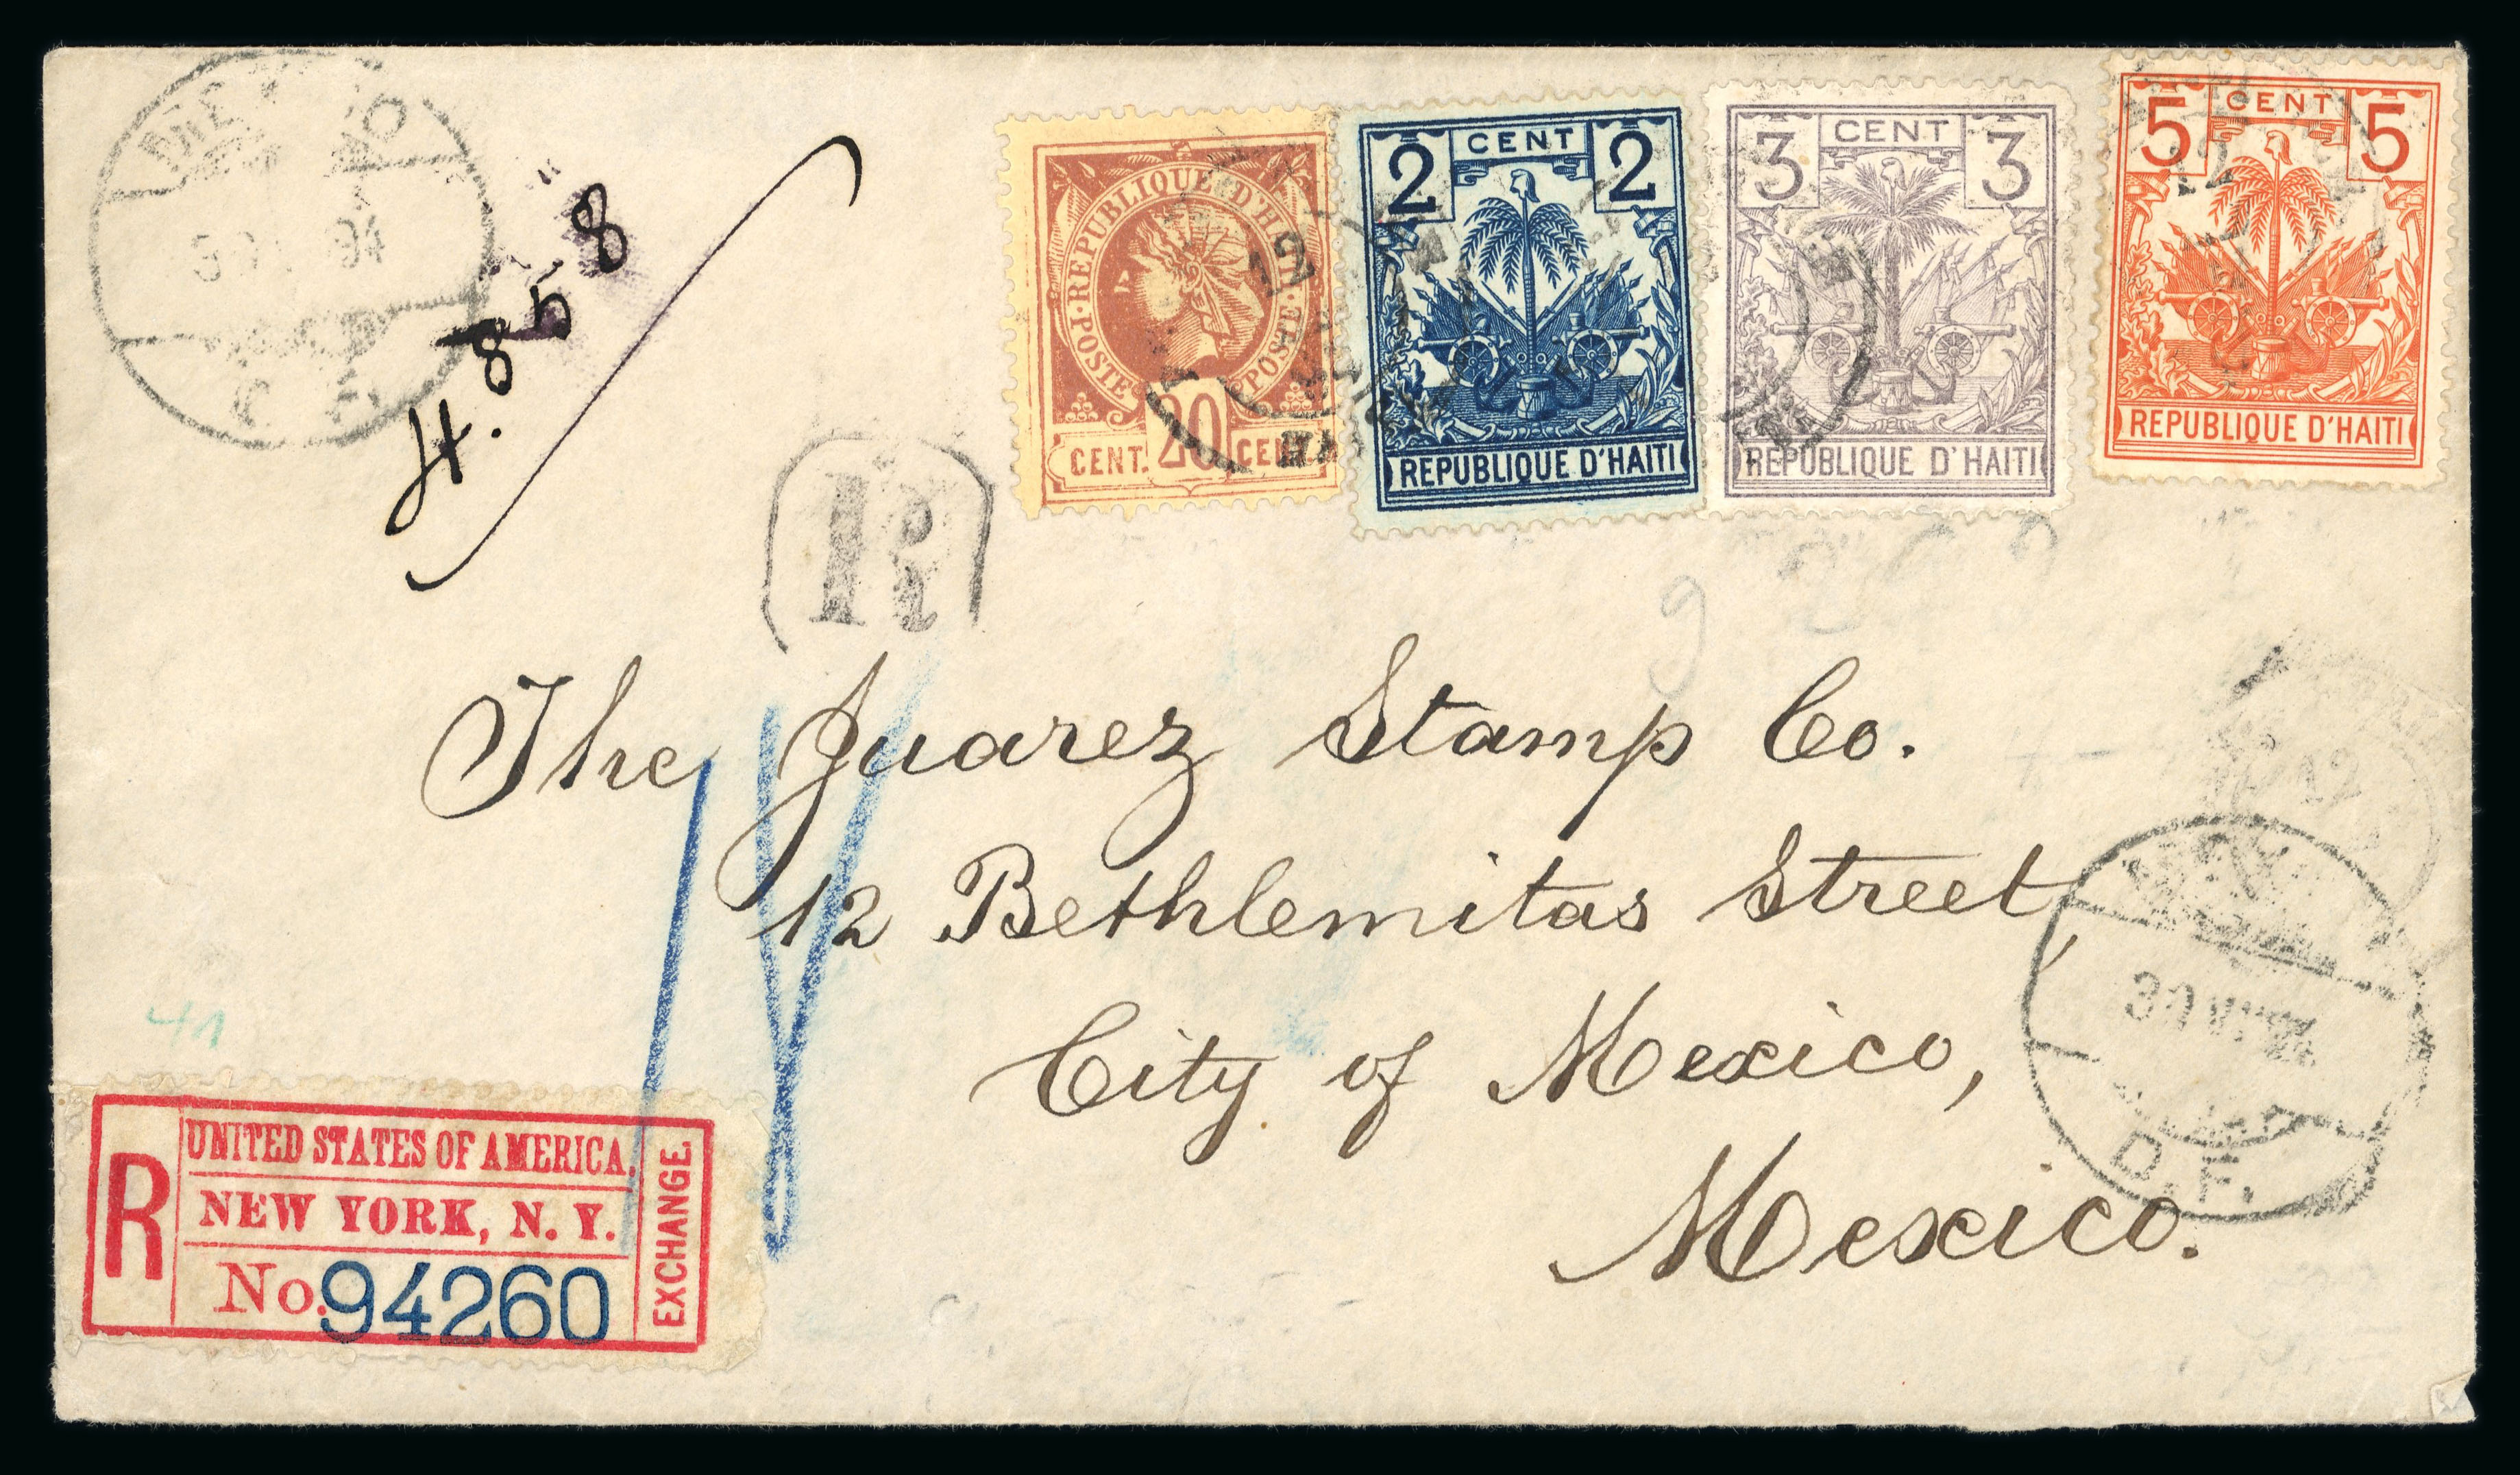 H. 858
R
POSTE·REPUBLIQUE D'HAITI·POSTE
CENT. 20 CENT.
12
2 CENT 2
REPUBLIQUE D'HAITI
3 CENT 3
REPUBLIQUE D'HAITI
5 CENT 5
REPUBLIQUE D'HAITI
12
The Juarez Stamp Co.
12 Bethlemitas Street,
City of Mexico,
Mexico.
12
30 VII
D.F.
R
UNITED STATES OF AMERICA.
NEW YORK, N. Y.
No. 94260
EXCHANGE.